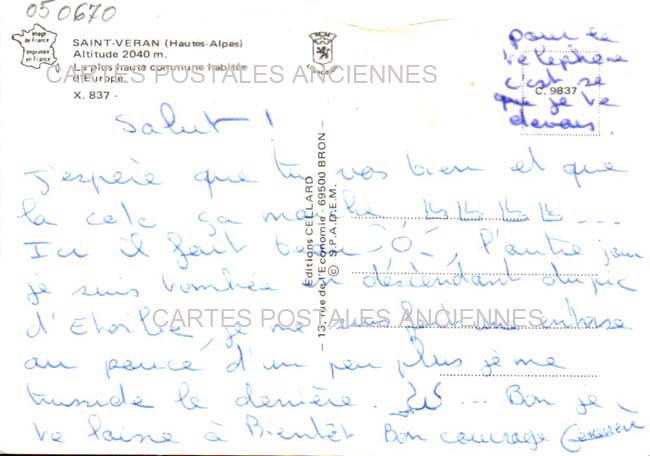 050670
Image de France
Imprimée en France
SAINT-VERAN (Hautes-Alpes)
Altitude 2040 m.
La plus haute commune habitée
d'Europe.
X. 837 -
CARTES POSTALES ANCIENNES
pour le
téléphone
c'est se
que je te
devais.
C. 9837
Salut !
J'espère que tu vas bien et que
la colo ça marche ...
Ici il fait beau, l'autre jour
je suis tombée en déscendant du pic
d'Etoilée, je me suis fait une entorse
au pouce d'un peu plus je me
le derrière. ... Bon je
te laisse à Bientôt Bon courage
Editions CELLARD
– 13, rue de l'Economie - 69500 BRON –
© S.P.A.D.E.M.
CARTES POSTALES ANCIENNES